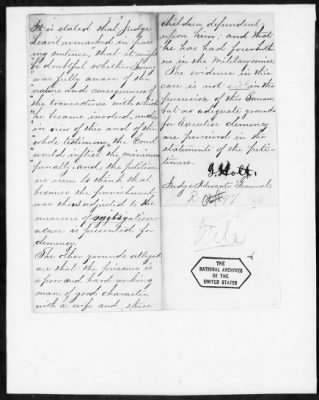 It is stated that Judge
Leavitt remarked in pass-
ing sentence, that it might
be doubtful whether Jenny
was fully aware of the
nature and consequences of
the transactions with which
he became involved, and
in view of this and of the
whole testimony, the Court
would inflict the minimum
penalty, and the petition-
ers seem to think that
because the punishment
was thus adjusted to the
measure of mitigation
a case is presented for
clemency.
The other grounds alleged
are that the prisoner is
a poor and hard working
man of good character
with a wife and three
children dependent
upon him; and that
he has had four brothers
in the Military service.
The evidence in this
case is not in the
possession of this Bureau
but no adequate grounds
for Executive clemency
are perceived in the
statements of the peti-
tioners.
J. Holt,
Judge Advocate General
File
THE
NATIONAL ARCHIVES
OF THE
UNITED STATES